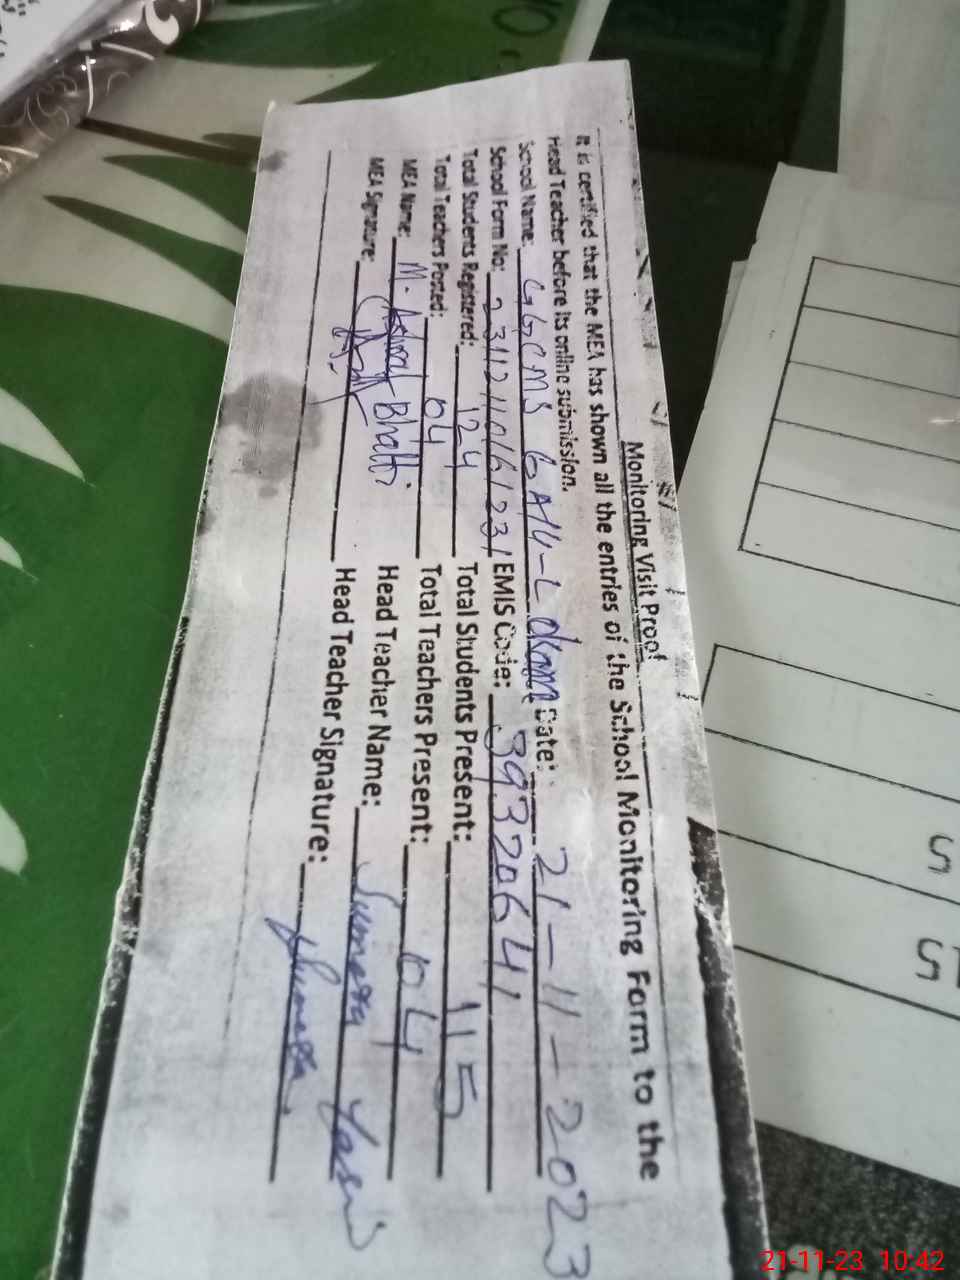 Monitoring Visit Proof
It is certified that the MEA has shown all the entries of the School Monitoring Form to the
Head Teacher before its online submission.
School Name: GGCMS 6A/4-L Date: 21-11-2023
School Form No: 23112110161231 EMIS Code: 39320641
Total Students Registered: 124 Total Students Present: 115
Total Teachers Posted: 04 Total Teachers Present: 04
MEA Name: M. Ashraf Bhatti Head Teacher Name: Sumera
MEA Signature: Head Teacher Signature: Sumera
21-11-23 10:42